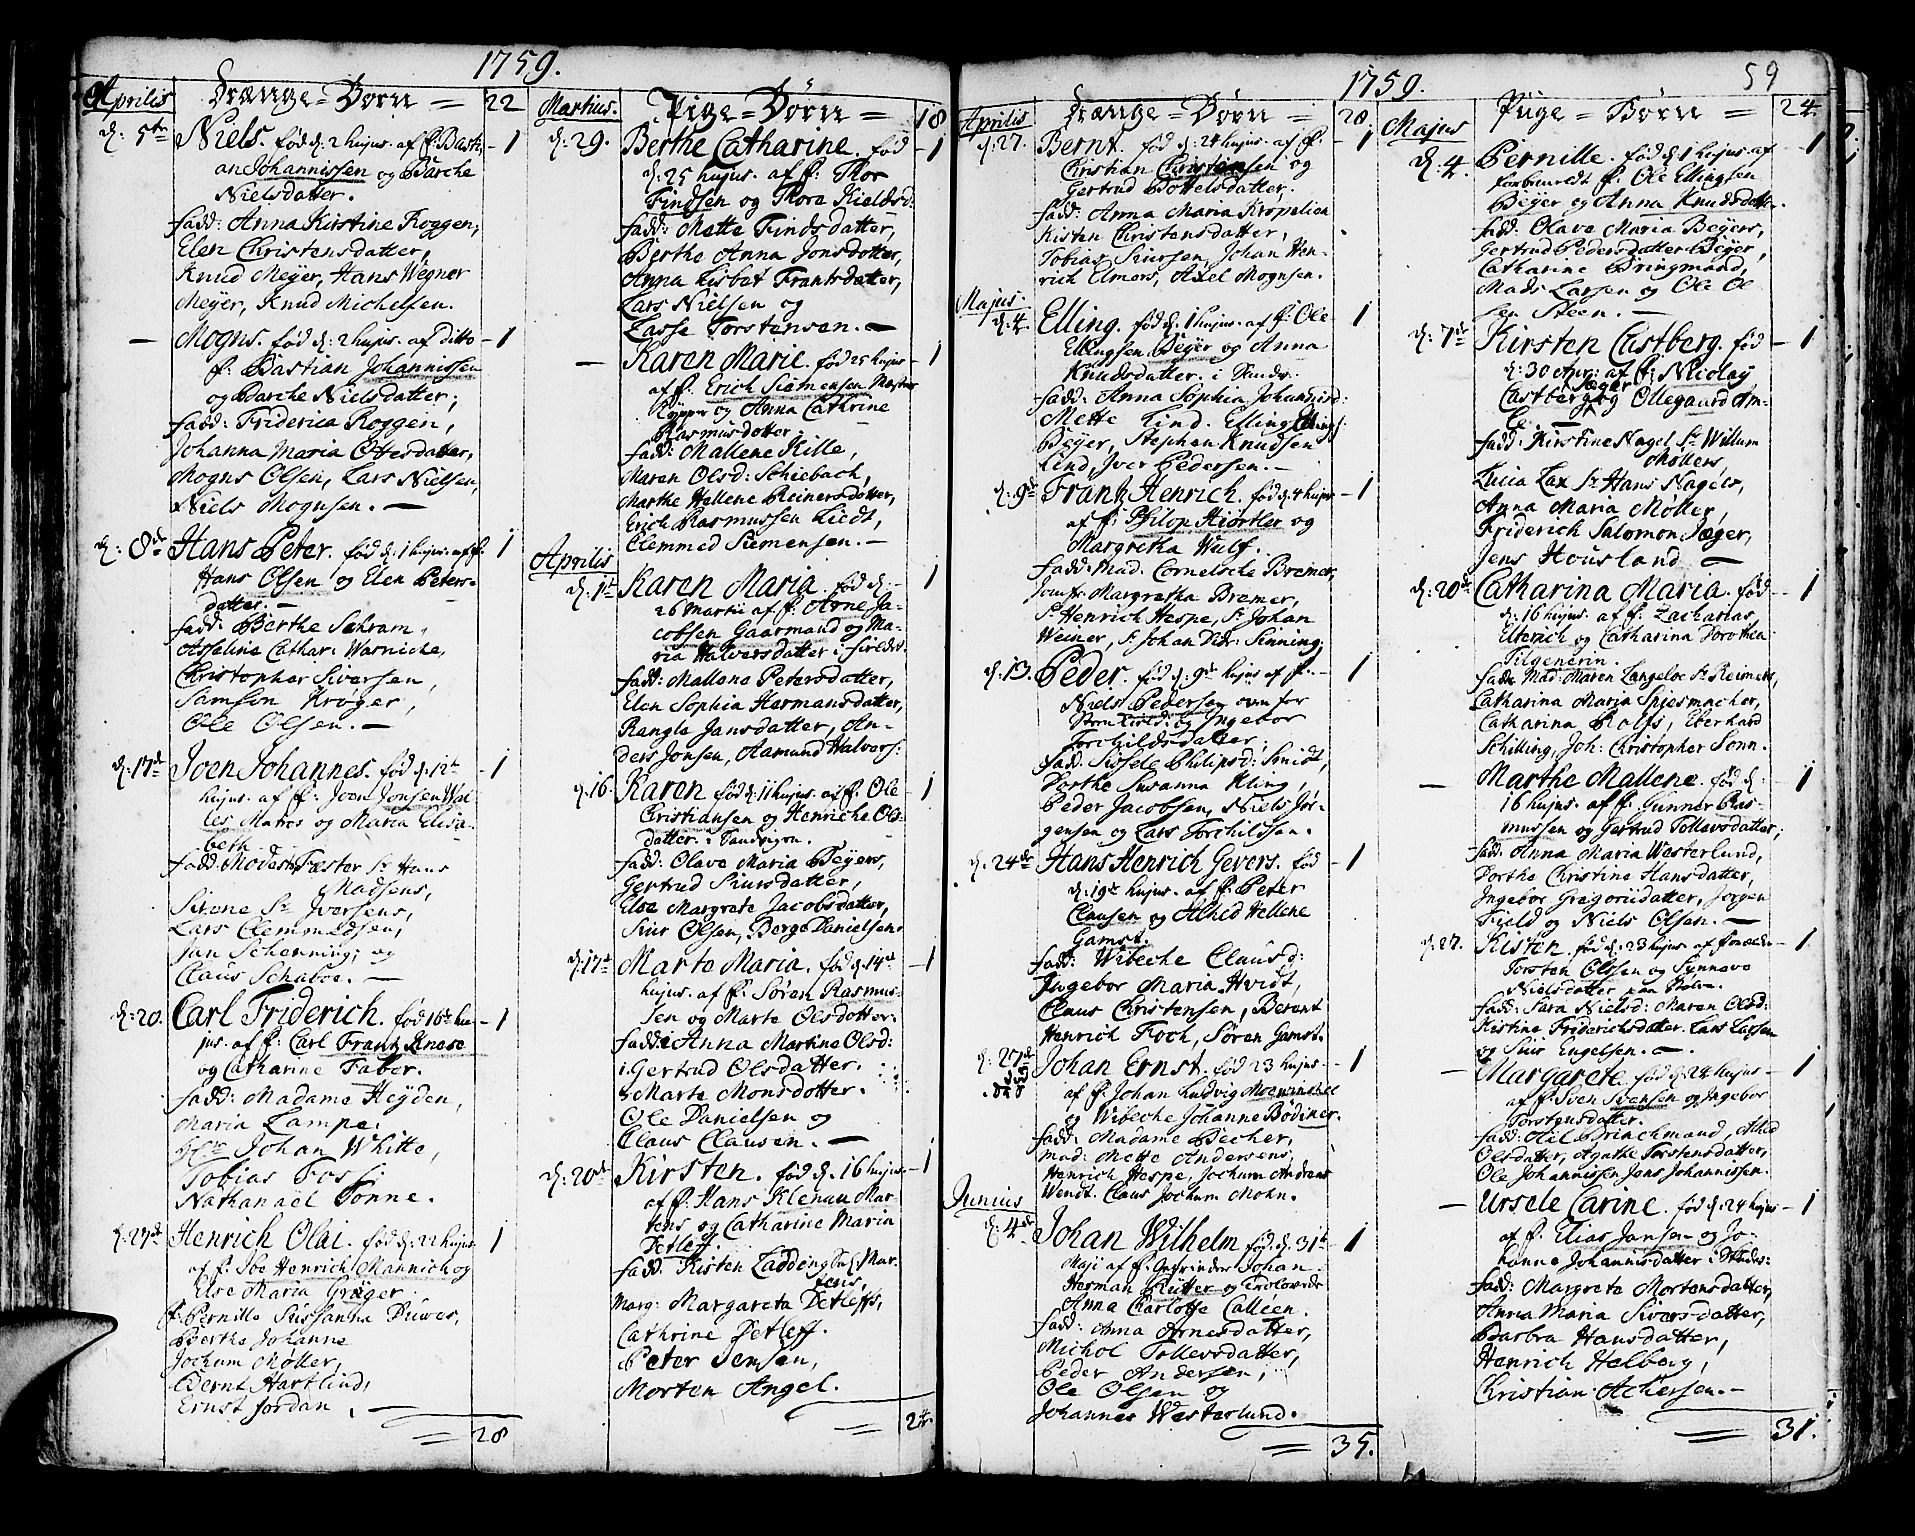 1759.
Aprilis
Drænge = Børn = 22
d: 5te Niels. fød d: 2 hujus. af f: Basti- 1
an Johannissen og Barche
Nielsdatter.
fadd: Anna Kirstine Roggen,
Elen Christensdatter,
Knud Meÿer, Hans Wegner
Meÿer, Knud Michelsen.
— Mogns. fød d: 2 hujus. af ditto - 1
f: Bastian Johannissen
og Barche Nielsdatter;
fadd: Friderica Roggen,
Johanna Maria Ottersdatter,
Mogns Olsen, Lars Nielsen,
Niels Mognsen. —
d: 8de Hans Peter. fød d: 1 hujus. af f: 1
Hans Olsen og Elen Peters-
datter. —
fadd: Berthe Schram,
Asseline Cathar: Warniche,
Christopher Siversen,
Samson Krøger,
Ole Olsen. —
d: 17de Joen Johannes. fød d: 12te - 1
hujus. af f: Joen Jonsen Wal-
les Matros og Maria Elisa-
beth.
fadd: Modest Fæster Sr Hans
Madsens,
Sirene Sr Iversens,
Lars Clemmedsen,
Jan Schenning, og
Claus Schaboe. —
d: 20. Carl Friderich. fød 16te hu- 1
jus. af f: Carl Frantz Knese
og Catharine Faber.
fadd: Madame Heÿden,
Maria Lampe,
Johan Whitte,
Tobias Foss,
Nathanael Tonne.
d: 27de Henrich Olai. fød d: 22 hujus 1
af f: Ibe Henrich Mannich og
Else Maria Gräger.
f: Pernille Sussanna Duwes,
Berthe Johanne
Jochum Møller,
Bernt Hartlind,
Ernst Jordan, —
= 28
Martius.
Pige = Børn = 18
d: 29. Berthe Catharine. fød - 1
d: 25 hujus. af f: Thor
Findsen og Thore Kieldsd.
fadd: Mette Findsdatter,
Berthe Anna Jonsdotter,
Anna Lisbet Frantsdatter,
Lars Nielsen og
Lasse Torstensen. —
— Karen Marie. fød 25 hujus - 1
af f: Erich Siemensen Mester
og Anna Cathrine
Rasmusdotter.
fadd: Mallene Kille,
Maren Olsd: Schiebach,
Marthe Hellene Reinersdotter,
Erich Rasmussen Liedt,
Clemmed Siemensen. —
Aprilis
d: 1te Karen Maria. fød d: - 1
26 Martii af f: Arne Ja-
cobsen Gaarmand og Ma-
ria Halversdatter i
fadd: Mallene Petersdatter,
Elen Sophia Hermansdatter,
Rangle Jansdatter, An-
ders Jonsen, Aamund Halvers:
d: 16. Karen fød d: 11 hujus. af f: Ole - 1
Christiansen og Henriche Ols-
datter. i Sandvigen.
fadd: Olave Maria Beÿers,
Gertrud Siursdatter,
Else Margrete Jacobsdatter,
Siur Olsen, Berge Danielsen.
d: 17de Marte Maria. fød d: 14de - 1
hujus. af f: Søren Rasmus-
sen og Marte Olsdotter.
fadd: Anna Martine Olsd:
Gertrud Olsdatter.
Marte Monsdotter.
Ole Danielsen og
Claus Clausen. —
d: 20de Kirsten. fød d. 16 hujus - 1
af f: Hans Klenau Mar-
tens og Catharine Maria
Detleff.
fadd: Kisten Ladding Mar-
tens,
Marg: Margareta Detleffs,
Cathrine Detleff.
Peter Jensen,
Morten Angel.
= 24.
1759. 59
Aprilis
Drænge = Børn = 28.
d: 27. Bernt. fød d: 24 hujus. af f: 1
Christian Christensen og
Gertrud Bottelsdatter.
fadd: Anna Maria Kropelien
Kisten Christensdatter,
Tobias Siursen, Johan Hen-
rich Elmers, Axel Mognsen.
Majus.
d: 4. Elling. fød d: 1 hujus. af f: Ole 1
Ellingsen Beÿer og Anna
Knudsdatter. i
fadd: Anna Sophia Johannisd:
Mette Lind. Elling Ellings:
Beÿer, Stephen Knudsen
Lind, Iver Pedersen. —
d: 9de Frantz Henrich. fød d: 4 hujus - 1
af f: Philop Hiörtler og
Margretha Wulf.
fadd: Mad: Cornelsche Bremer,
Jomfr. Margretha Bremer,
Sr Henrich Hespe, Sr Johan
Weiner, Sr Johan Didr: Sinning,
d: 13. Peder. fød d: 9de hujus af f: - 1
Niels Pedersen oven for
og Ingebor
Torchildsdatter.
fadd: Sissele Philipsd: Smidt,
Dorthe Susanna Kling,
Peder Jacobsen, Niels Jør-
gensen og Lars Torchildsen.
d: 24de Hans Henrich Gevers. fød 1
d: 19de hujus. af f: Peter
Clausen og Alhed Hellene
Gamst.
fadd: Wibeche Clausd:
Ingebor Maria Hvidt,
Claus Christensen, Berent
Henrich Foch, Søren Gamst.
d: 27de Johan Ernst. fød 23 hujus - 1
af f: Johan Ludvig
og Wibeche Johanne Bödiner.
fadd: Madame Becher,
Mad: Mette Andersens,
Henrich Hespe, Jochum Andreas
Wendt. Claus Jochum Mohn.
Junius
d: 4de Johan Wilhelm fød. d: 31te 1
Maji af f: Johan
Herman Rütter og
Anna Charlotte Calleen.
fadd: Anna Arnesdatter,
Michol Tollevsdatter,
Peder Andersen,
Ole Olsen og
Johannes Westerlund.
= 35.
Majus
Piige = Børn = 24
d: 4. Pernille. fød d: 1 hujus. af 1
forbemeldt f: Ole Ellingsen
Beÿer og Anna Knudsdatter.
fadd: Olave Maria Beÿers,
Gertrud Pedersdatter Beÿer,
Catharine Bringmand,
Mads Larsen og Ole Ol-
sen Steen. —
d: 7de Kirsten Castberg. fød - 1
d: 30 Apr: af f: Nicolaÿ
Castberg og Ollegaard Am-
Jæger
fadd: Kirstine Nagel Sr Willum
Møllers,
Lucia Lax Sr Hans Nagels,
Anna Maria Møller,
Friderich Salomon Jæger,
Jens Housland —
d: 20de Catharina Maria. fød - 1
d: 16 hujus. af f: Zacharias
Uterich og Catharina Dorothea
Tilgenerin.
fadd: Mad: Maren Langeloe Sr Reimers,
Catharina Maria Spiesmacher,
Catharina Rolfs, Eberhard
Schilling, Joh: Christopher Sonn.
— Marthe Mallene. fød d: - 1
16 hujus. af f: Gunner Ras-
mussen og Gertrud Tollevsdatter;
fadd: Anna Maria Westerlund,
Dorthe Christine Hansdatter,
Ingebor Gregoriidatter, Jørgen
Kield og Niels Olsen. —
d: 27. Kisten fød d: 23 hujus. af - 1
Torsten Olssen og Synneve
Nielsdatter paa
fadd: Sara Nielsd: Maren Olsd:
Kistine Friderichsdatter. Lars Larsen
og Siur Engelsen. —
— Margarete. fød d: 24 hujus - 1
af f: Sven Svensen og Ingebor
Torstensdatter.
fadd: Brinchmand, Alhed
Olsdatter, Agathe Torstensdatter,
Ole Johannissen, Jens Johannissen.
— Ursele Carine. fød d: 24 hujus - 1
af f. Elias Jansen og Jo-
hanne Johannisdatter
fadd: Margrete Mortensdatter,
Anna Maria Siversdatter,
Barbra Hansdatter,
Henrich Helberg,
Christian Achersen. —
= 31.